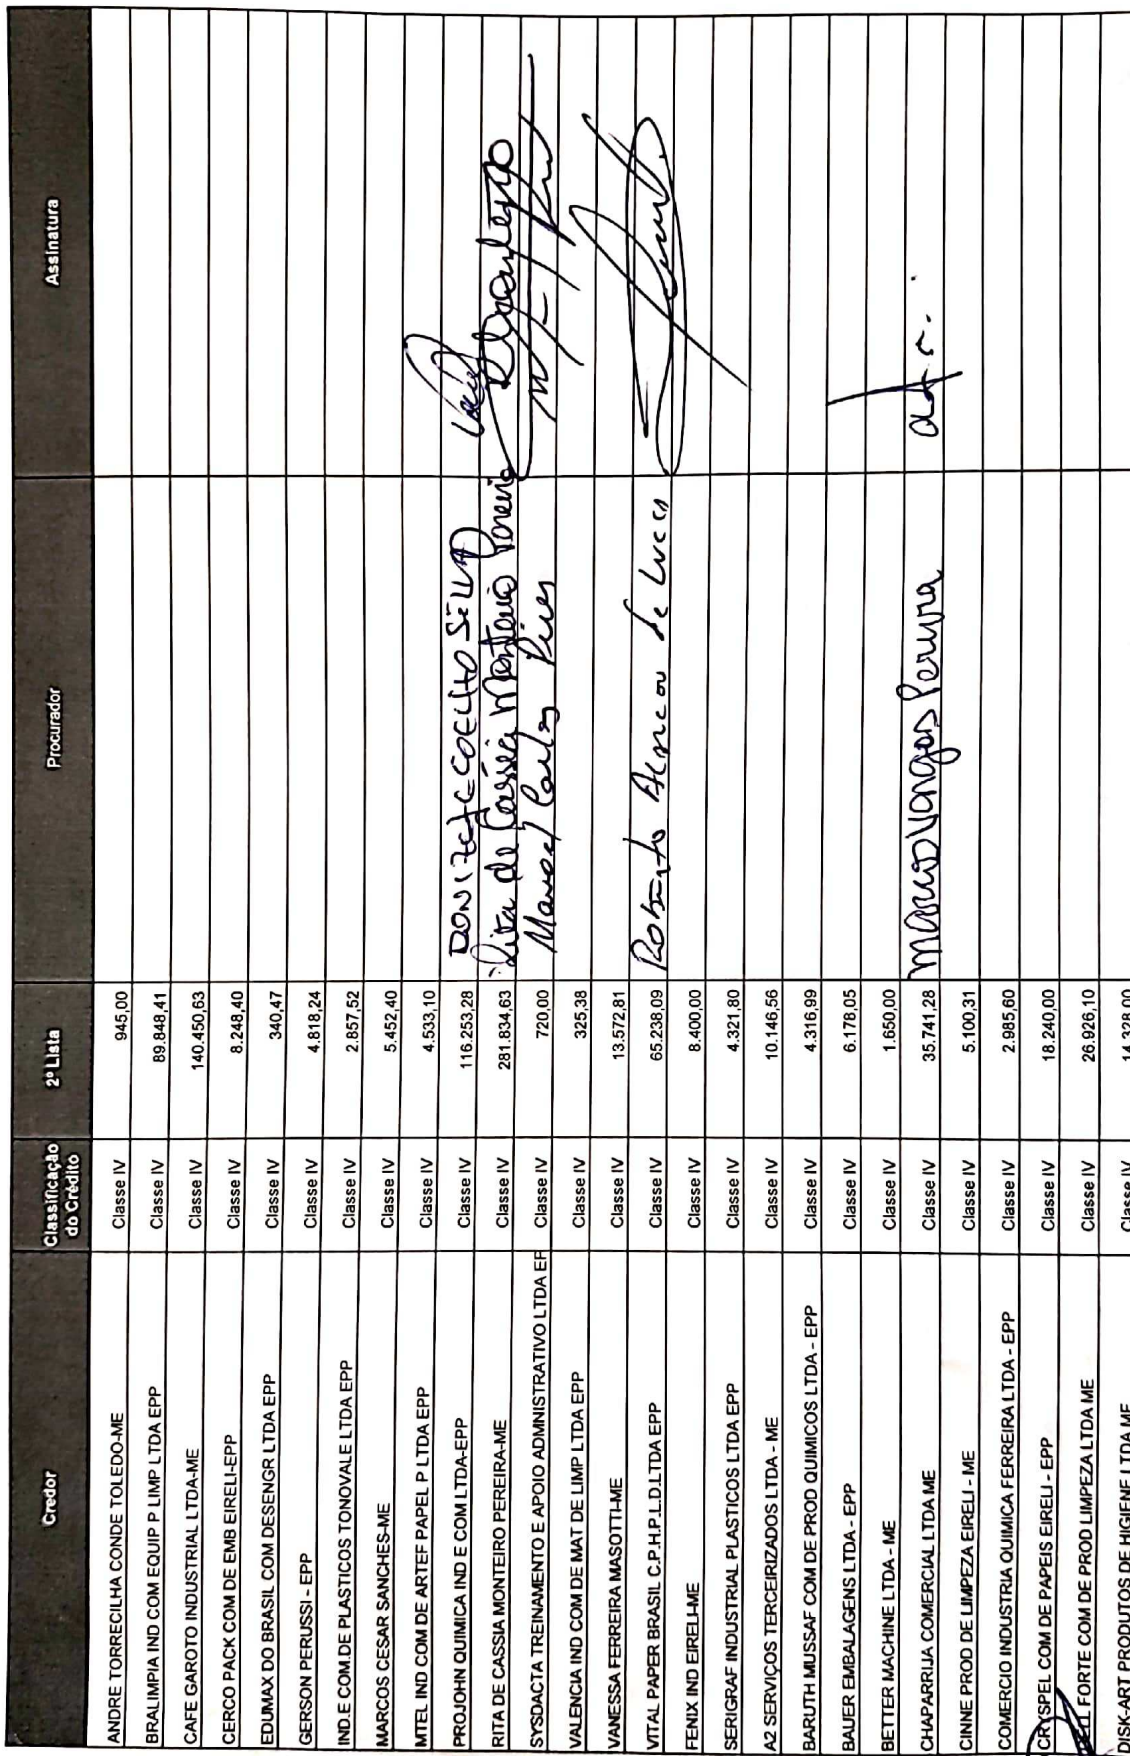 Credor Classificação do Crédito 2º Lista Procurador Assinatura
ANDRE TORRECILHA CONDE TOLEDO-ME Classe IV 945,00
BRALIMPIA IND COM EQUIP P LIMP LTDA EPP Classe IV 89.848,41
CAFE GAROTO INDUSTRIAL LTDA-ME Classe IV 140.450,63
CERCO PACK COM DE EMB EIRELI-EPP Classe IV 8.248,40
EDUMAX DO BRASIL COM DESENGR LTDA EPP Classe IV 340,47
GERSON PERUSSI - EPP Classe IV 4.818,24
IND.E COM.DE PLASTICOS TONOVALE LTDA EPP Classe IV 2.857,52
MARCOS CESAR SANCHES-ME Classe IV 5.452,40
MTEL IND COM DE ARTEF PAPEL P LTDA EPP Classe IV 4.533,10
PROJOHN QUIMICA IND E COM LTDA-EPP Classe IV 116.253,28 DONIZETE COELHO
RITA DE CASSIA MONTEIRO PEREIRA-ME Classe IV 281.834,63 Rita de Cassia Monteiro Pereira
SYSDACTA TREINAMENTO E APOIO ADMNISTRATIVO LTDA EP Classe IV 720,00 Manoel Carlos Pires
VALENCIA IND COM DE MAT DE LIMP LTDA EPP Classe IV 325,38
VANESSA FERREIRA MASOTTI-ME Classe IV 13.572,81
VITAL PAPER BRASIL C.P.H.P.L.D.LTDA EPP Classe IV 65.238,09 Roberto de Lucca
FENIX IND EIRELI-ME Classe IV 8.400,00
SERIGRAF INDUSTRIAL PLASTICOS LTDA EPP Classe IV 4.321,80
A2 SERVIÇOS TERCEIRIZADOS LTDA - ME Classe IV 10.146,56
BARUTH MUSSAF COM DE PROD QUIMICOS LTDA - EPP Classe IV 4.316,99
BAUER EMBALAGENS LTDA - EPP Classe IV 6.178,05
BETTER MACHINE LTDA - ME Classe IV 1.650,00
CHAPARRIJA COMERCIAL LTDA ME Classe IV 35.741,28 Pereira
CINNE PROD DE LIMPEZA EIRELI - ME Classe IV 5.100,31
COMERCIO INDUSTRIA QUIMICA FERREIRA LTDA - EPP Classe IV 2.985,60
CRYSPEL COM DE PAPEIS EIRELI - EPP Classe IV 18.240,00
FORTE COM DE PROD LIMPEZA LTDA ME Classe IV 26.926,10
DISK-ART PRODUTOS DE HIGIENE LTDA ME Classe IV 14.328,00